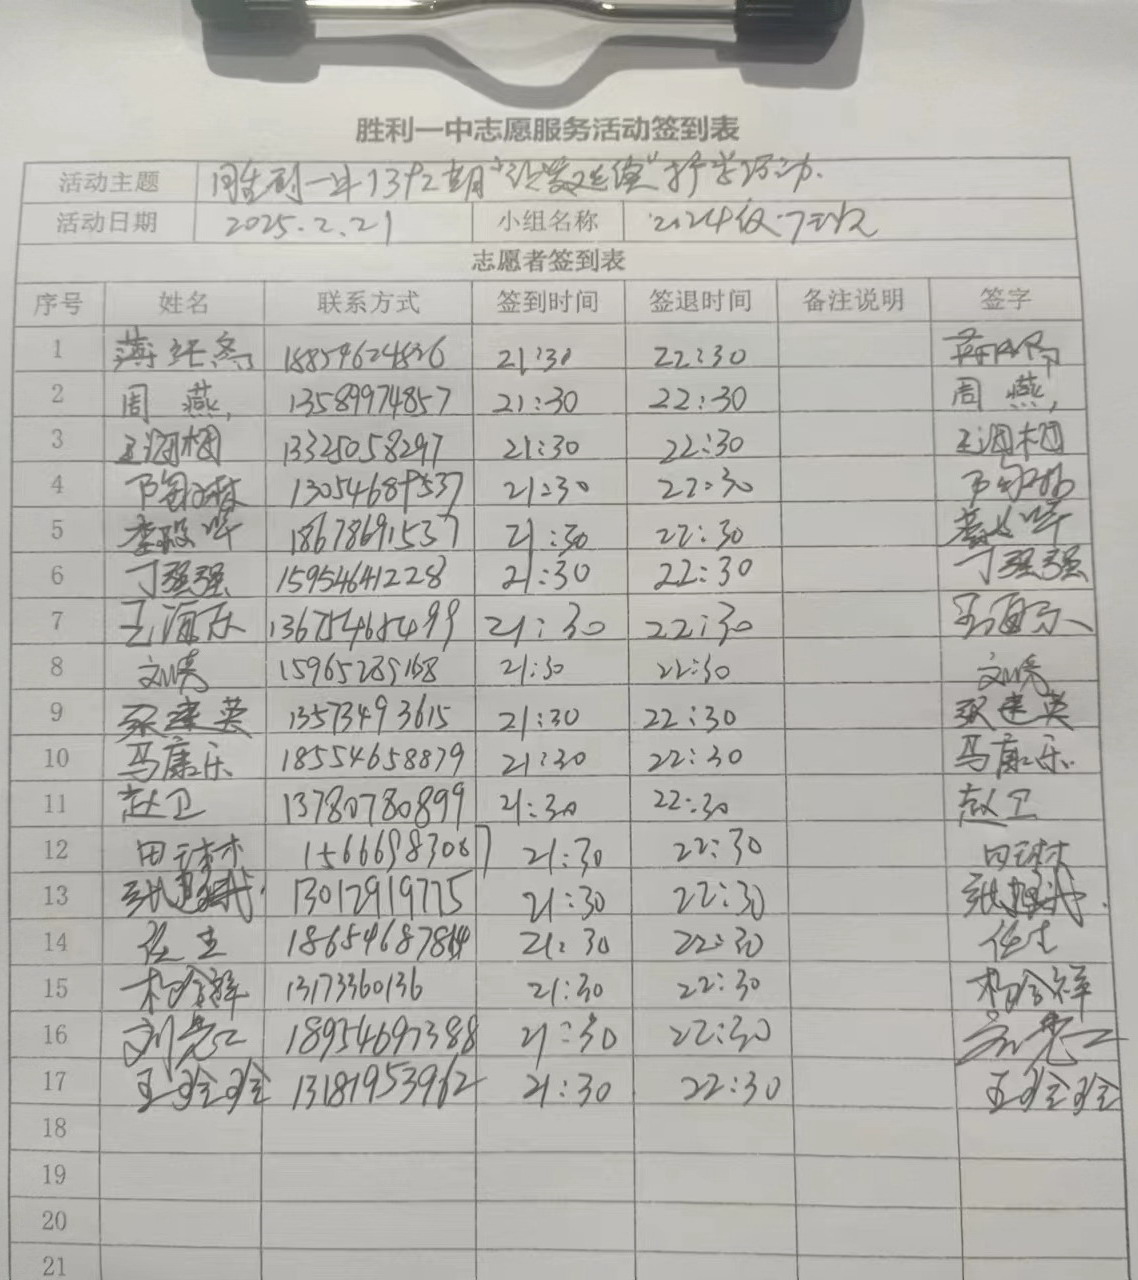 胜利一中志愿服务活动签到表
活动主题 胜利一中1392期"让爱延续"护学活动.
活动日期 2025.2.21 小组名称 2024级.7班
志愿者签到表
序号 姓名 联系方式 签到时间 签退时间 备注说明 签字
1 18854624836 21:30 22:30
2 周燕 13589974857 21:30 22:30 周燕
3 13325058297 21:30 22:30
4 13054689537 21:30 22:30
5 18678691537 21:30 22:30
6 丁强强 15954641228 21:30 22:30 丁强强
7 王海 21:30 22:30 王海
8 21:30 22:30
9 张建英 13573493615 21:30 22:30 张建英
10 马康乐 18554658879 21:30 22:30 马康乐
11 赵卫 13780780899 21:30 22:30 赵卫
12 田 15666983087 21:30 22:30 田
13 张 13012919775 21:30 22:30 张
14 任 21:30 22:30 任
15 13173360136 21:30 22:30
16 18954697388 21:30 22:30
17 王玲玲 13181953962 21:30 22:30 王玲玲
18
19
20
21